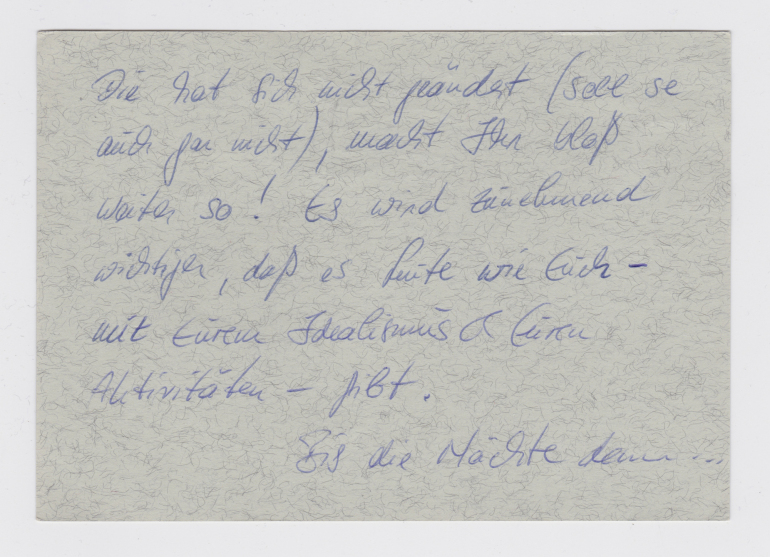 Die hat sich nicht geändert (soll se
auch gar nicht), macht Ihr bloß
weiter so! Es wird zunehmend
wichtiger, daß es Leute wie Euch –
mit Eurem Idealismus & Euren
Aktivitäten – gibt.
Bis die Nächte dann...